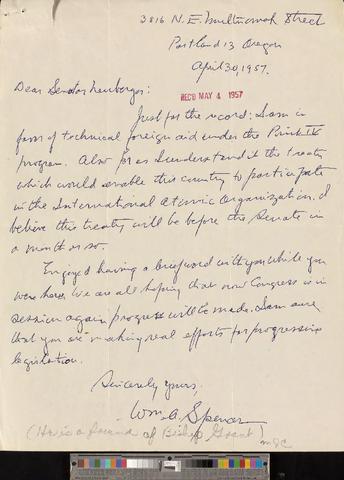 3816 N.E. Multnomah Street
Portland 13 Oregon
April 30, 1957.
Dear Senator Neuberger:
REC'D MAY 4 1957
Just for the record: I am in
favor of technical foreign aid under the Point IV
program. Also for as I understand it the treaty
which would enable this country to participate
in the International Atomic Organization. I
believe this treaty will be before the Senate in
a month or so.
Enjoyed having a brief word with you while you
were here. We are all hoping that now Congress is in
session again progress will be made. I am sure
that you are making real efforts for progressive
legislation.
Sincerely yours,
Wm. A. Spencer
(He is a friend of Bishop Grant)